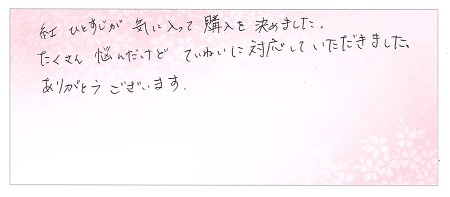 紅ひとすじが 気に入って 購入を 決めました.
たくさん 悩んだけど ていねいに 対応して いただきました。
ありがとう ございます.